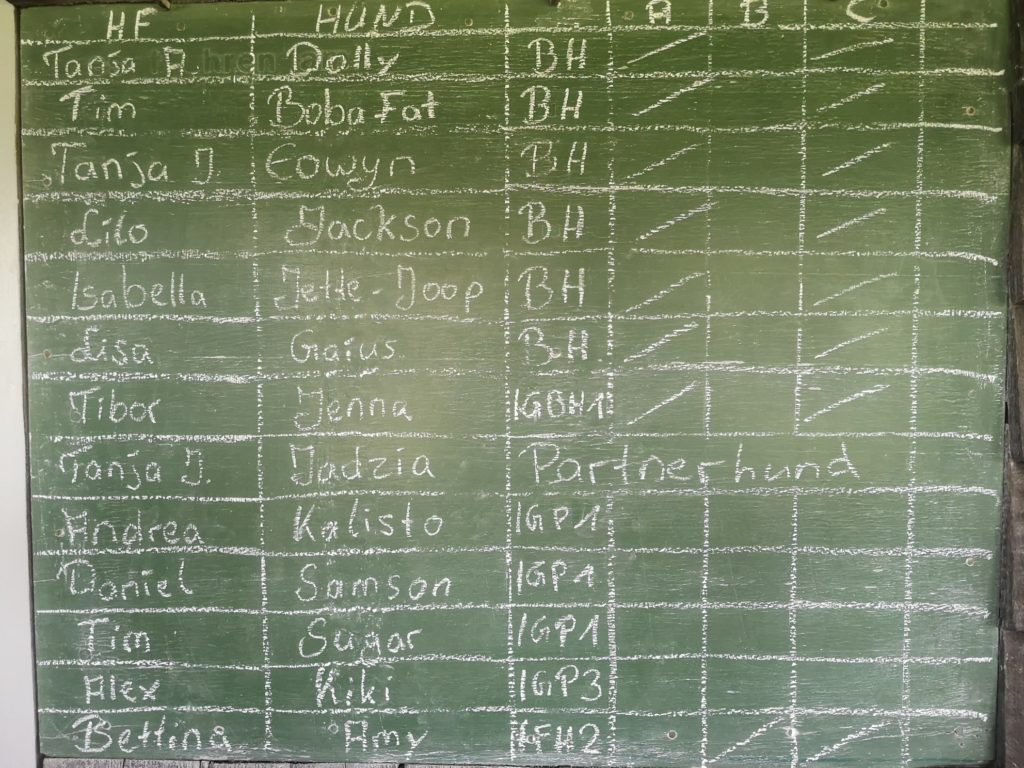 HF HUND A B C
Tanja A. Dolly BH
Tim Boba Fat BH
Tanja J. Eowyn BH
Lilo Jackson BH
Isabella Jette-Joop BH
Lisa Gaius BH
Tibor Jenna IGBH1
Tanja J. Jadzia Partnerhund
Andrea Kalisto IGP1
Daniel Samson IGP1
Tim Sugar IGP1
Alex Kiki IGP3
Bettina Amy IFH2